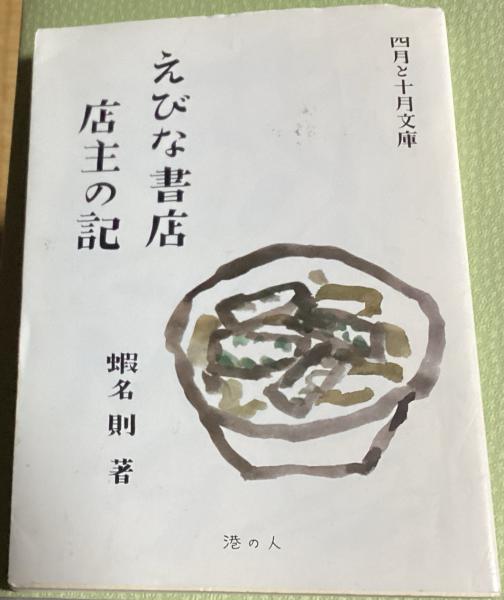 四月と十月文庫
えびな書店
店主の記
蝦名則 著
港の人